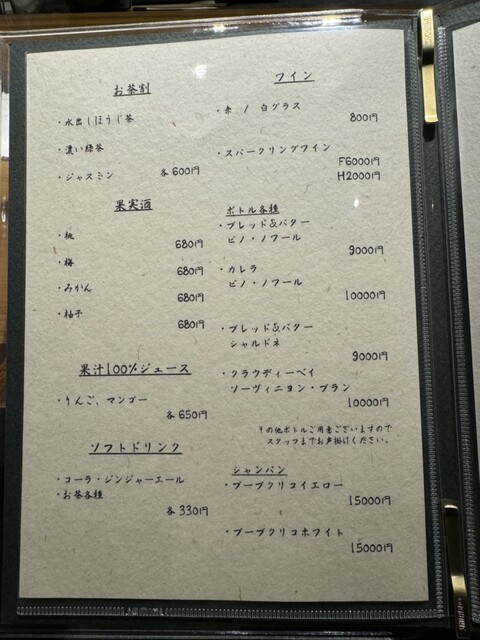 お茶割
・水出しほうじ茶
・濃い緑茶
・ジャスミン 各600円
果実酒
・桃 680円
・梅 680円
・みかん 680円
・柚子 680円
果汁100%ジュース
・りんご、マンゴー
各650円
ソフトドリンク
・コーラ・ジンジャーエール
・お茶各種
各330円
ワイン
・赤 / 白グラス
800円
・スパークリングワイン
F6000円
H2000円
ボトル各種
・ブレッド&バター
ピノ・ノワール
9000円
・カレラ
ピノ・ノワール
10000円
・ブレッド&バター
シャルドネ
9000円
・クラウディーベイ
ソーヴィニヨン・ブラン
10000円
その他ボトルご用意ございますので
スタッフまでお声掛けください。
シャンパン
・ブーブクリコイエロー
15000円
・ブーブクリコホワイト
15000円